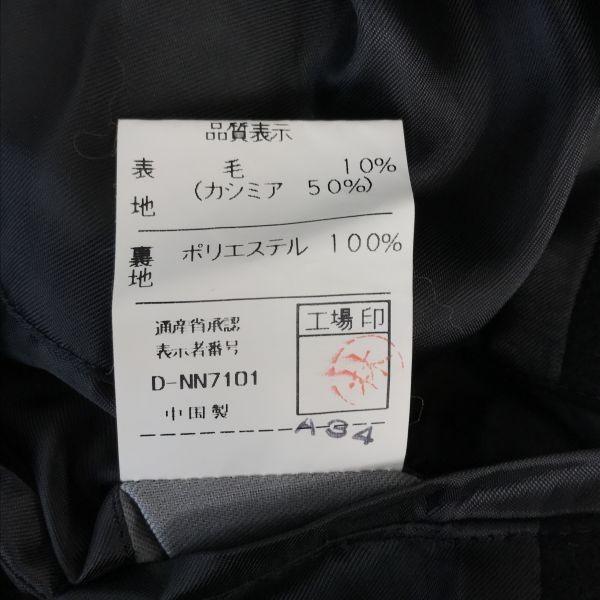 品質表示
表地 毛 10%
(カシミア 50%)
裏地 ポリエステル 100%
通産省承認
表示者番号
D-NN7101
中国製
工場印
A34